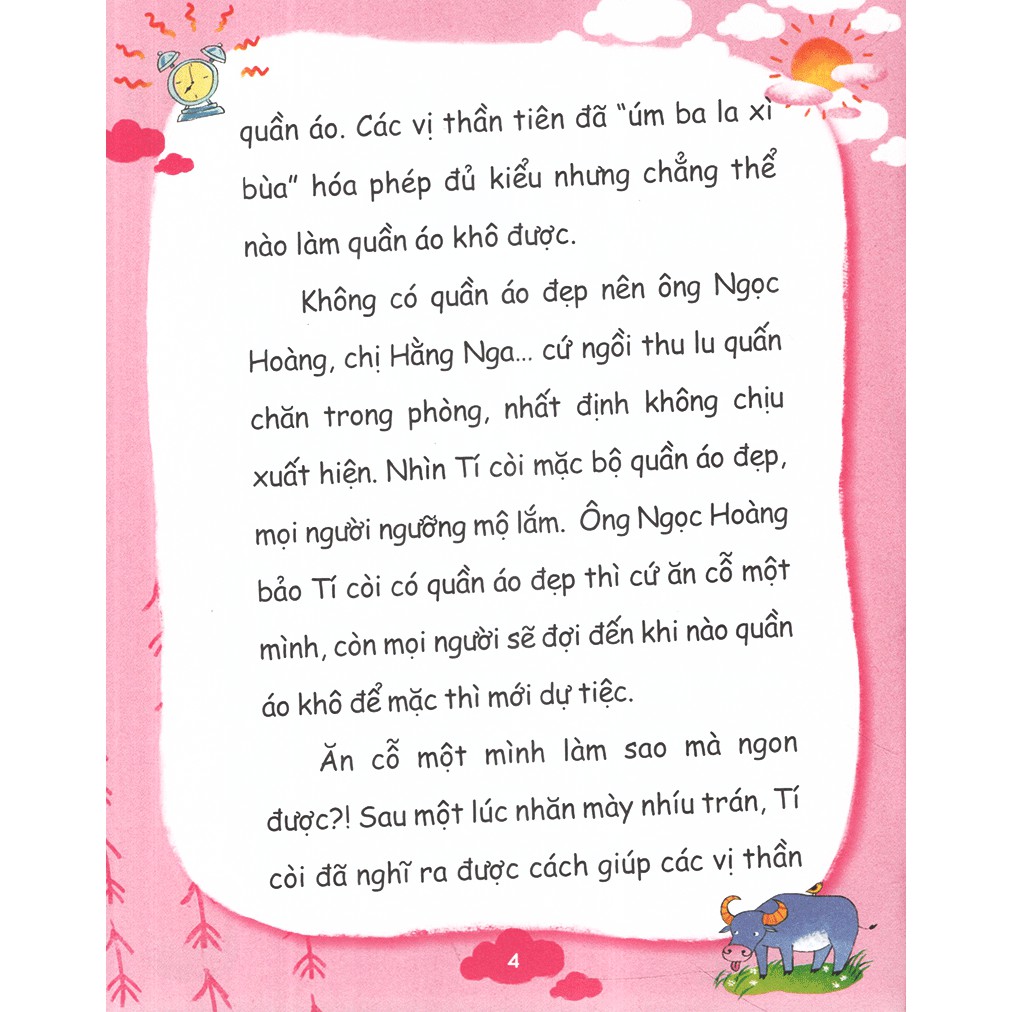 quần áo. Các vị thần tiên đã “úm ba la xì
bùa” hóa phép đủ kiểu nhưng chẳng thể
nào làm quần áo khô được.
Không có quần áo đẹp nên ông Ngọc
Hoàng, chị Hằng Nga... cứ ngồi thu lu quấn
chăn trong phòng, nhất định không chịu
xuất hiện. Nhìn Tí còi mặc bộ quần áo đẹp,
mọi người ngưỡng mộ lắm. Ông Ngọc Hoàng
bảo Tí còi có quần áo đẹp thì cứ ăn cỗ một
mình, còn mọi người sẽ đợi đến khi nào quần
áo khô để mặc thì mới dự tiệc.
Ăn cỗ một mình làm sao mà ngon
được?! Sau một lúc nhăn mày nhíu trán, Tí
còi đã nghĩ ra được cách giúp các vị thần
4